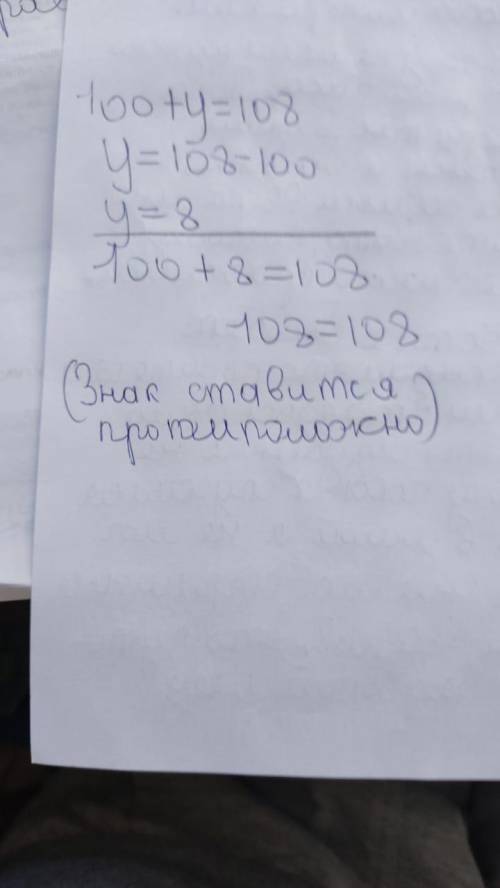 100+y=108
y=108-100
y=8
100+8=108
108=108
(Знак ставится
противоположно)